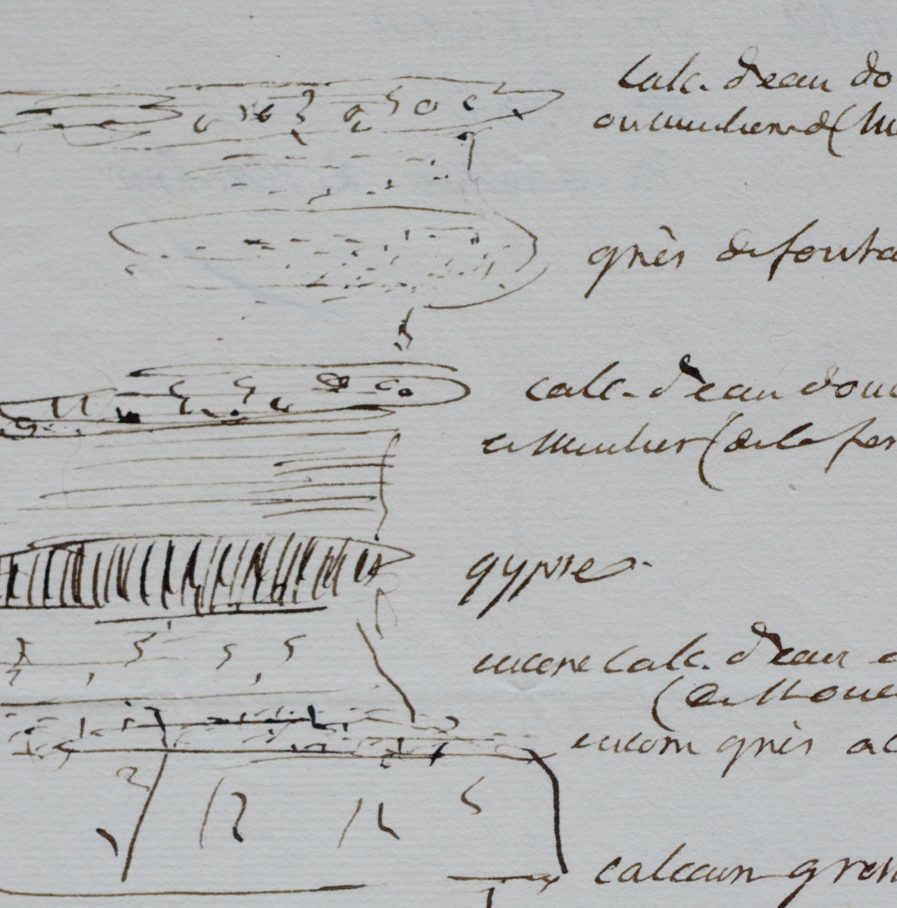 Calc. d'eau do
ou meulieres d(
grès de fonta
calc. d'eau douc
et meulier (de la fer
gypse.
encore calc. d'eau d
(de St Oue
encore grès
calcaire gross